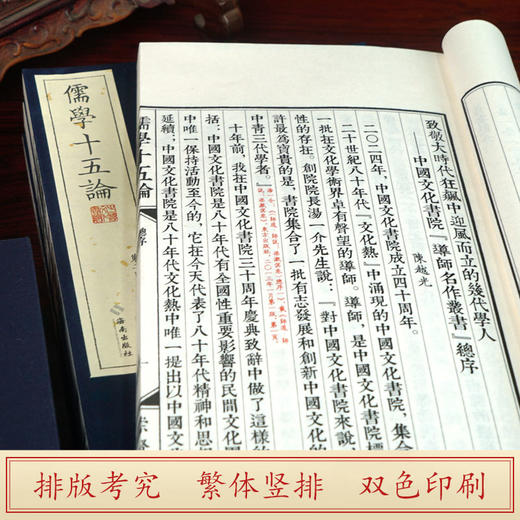 致敬大時代狂飆中迎風而立的幾代學人
——中國文化書院「導師名作叢書」總序
陳越光
二〇二四年,中國文化書院成立四十周年。
二十世紀八十年代「文化熱」中涌現的中國文化書院,集合
一批在文化學術界卓有聲望的導師。導師,是中國文化書院
性的存在。創院院長湯一介先生說:「對中國文化書院來說,
許最爲寶貴的是,書院集合了一批有志發展和創新中國文化
中青三代學者。」
十年前,我在中國文化書院三十周年慶典致辭中做了這樣的
括:中國文化書院是八十年代有全國性重要影響的民間文化團
中唯一保持活動至今的,它在今天代表了八十年代精神和思想
延續;中國文化書院是八十年代文化熱中唯一提出以中國文
儒學十五論 總序 一
儒學十五論
海南出版社
排版考究 繁体竖排 双色印刷